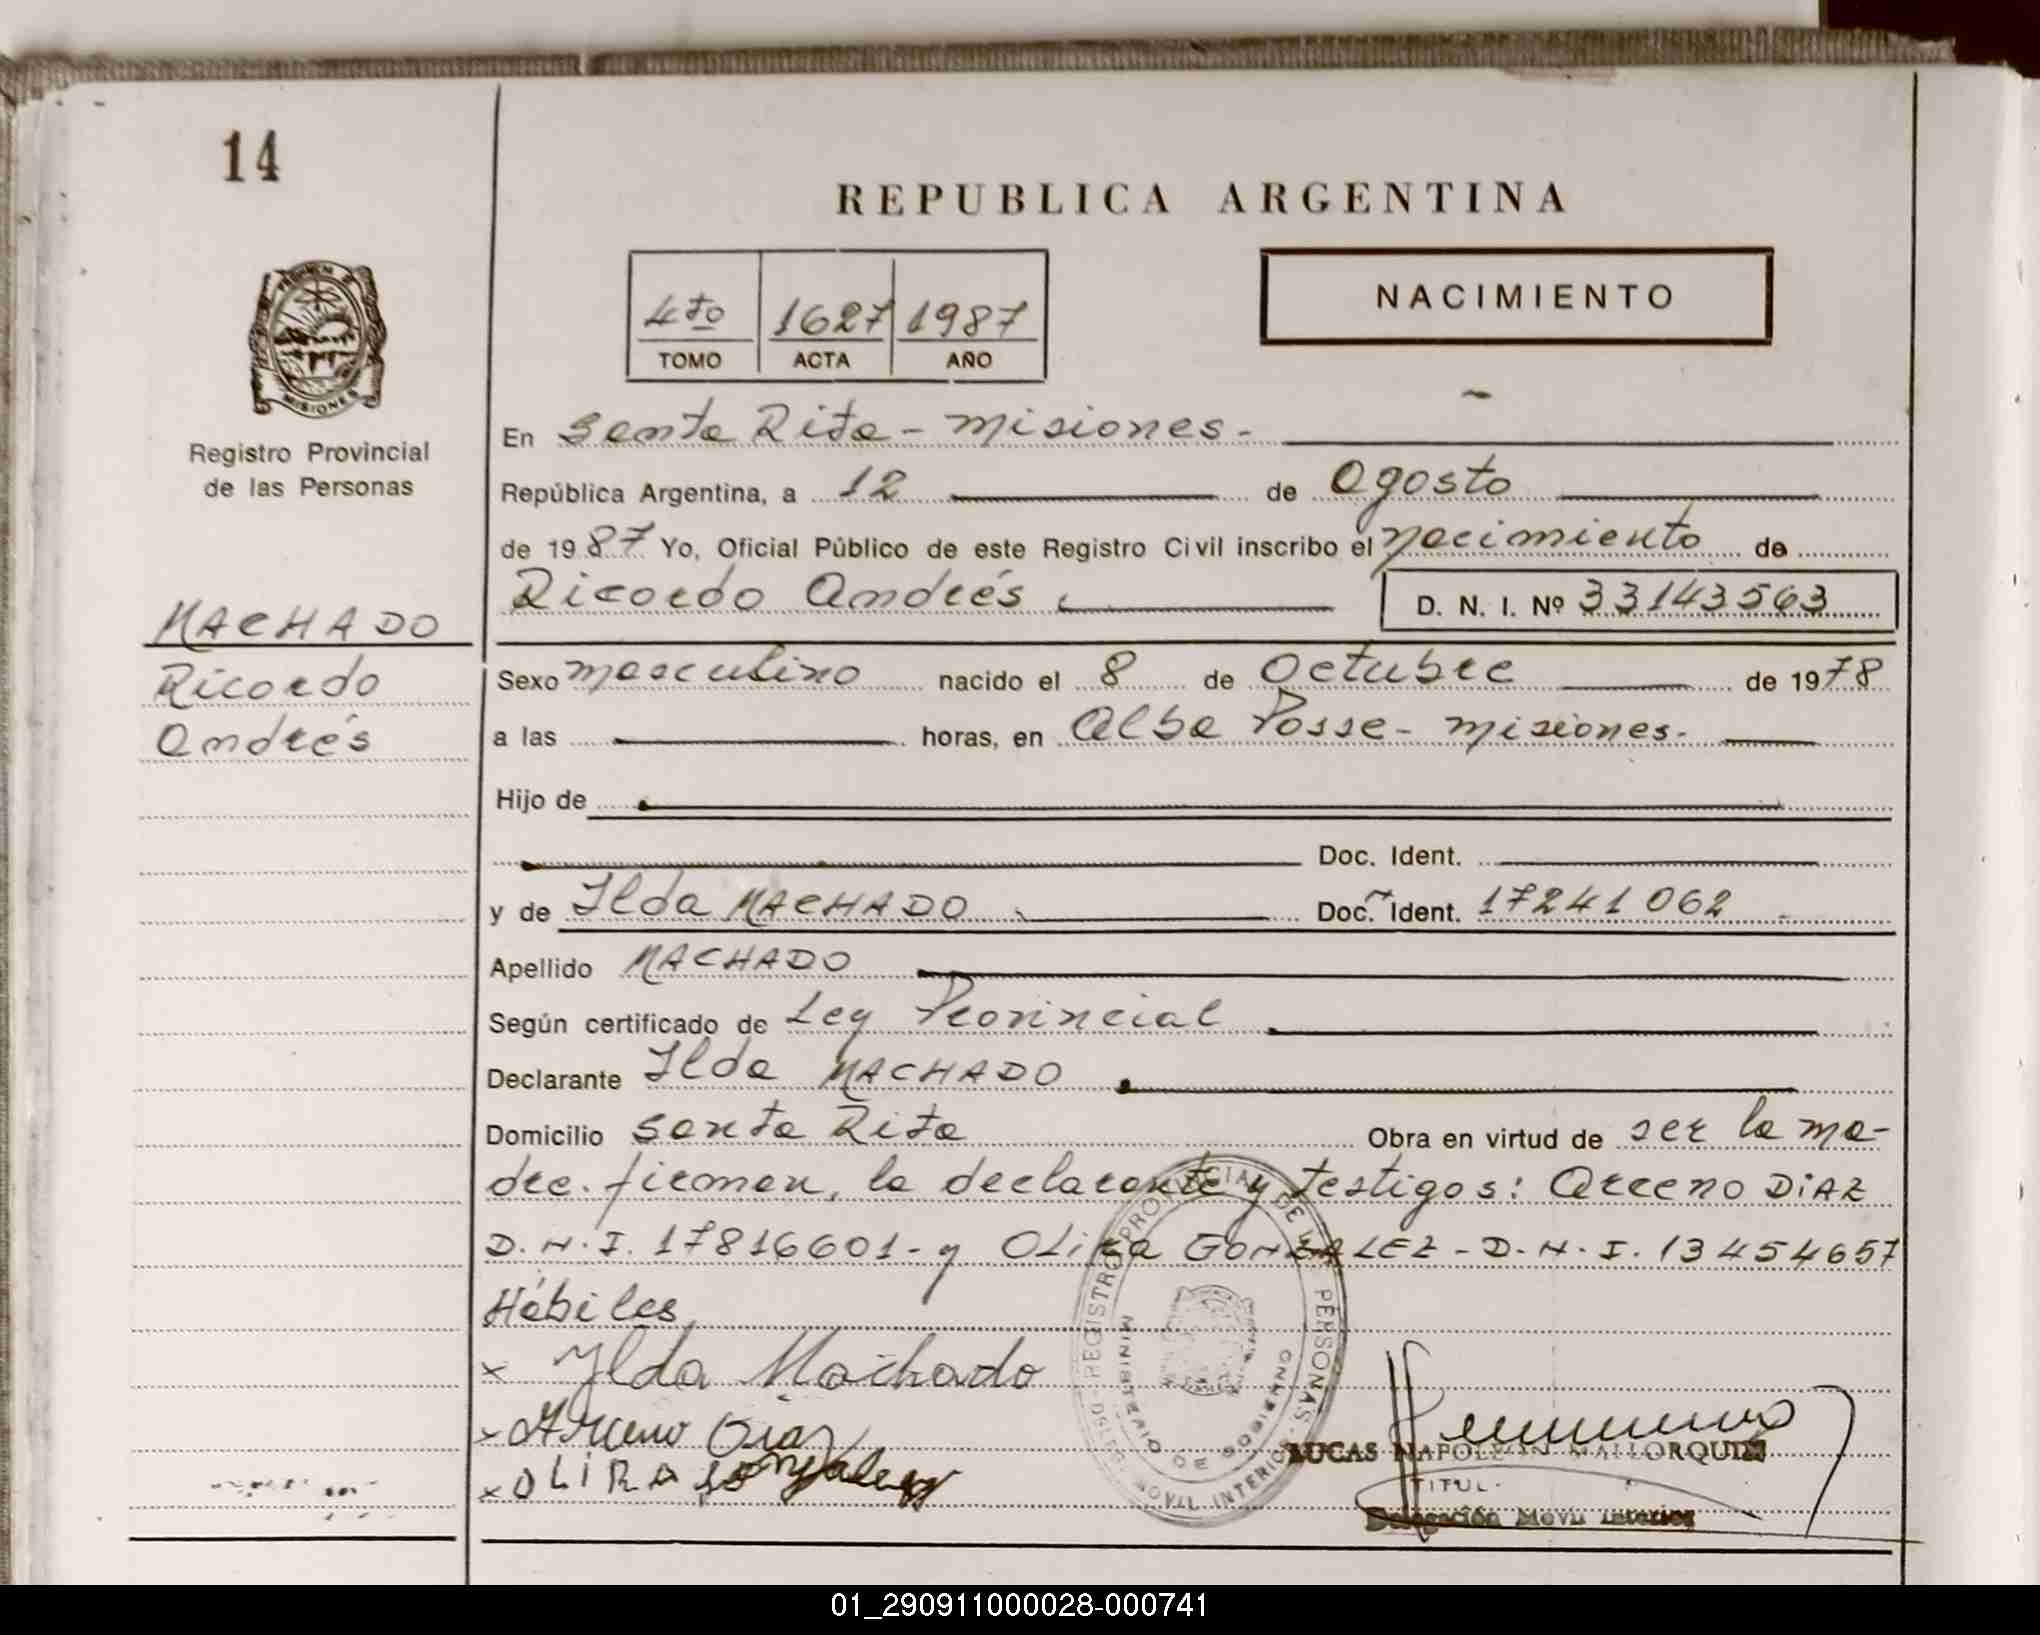 14
REPUBLICA ARGENTINA
4to 1627 1987
TOMO ACTA AÑO
NACIMIENTO
MISIONES
Registro Provincial
de las Personas
MACHADO
Ricardo
Andrés
En Santa Rita - Misiones.-
República Argentina, a 12 de Agosto
de 1987 Yo, Oficial Público de este Registro Civil inscribo el nacimiento de
Ricardo Andrés D. N. I. Nº 33143563
Sexo masculino nacido el 8 de Octubre de 1978
a las horas, en Alba Posse - Misiones.-
Hijo de
Doc. Ident.
y de Ilda MACHADO Doc. Ident. 17241062
Apellido MACHADO
Según certificado de Ley Provincial
Declarante Ilda MACHADO
Domicilio Santa Rita Obra en virtud de ser la ma-
dre. firman, la declarante y testigos: Arceno DiAZ
D.N.I. 17816601 - y OLiRa GONZALEZ - D.N.I. 13454657
Hábiles
x Ylda Machado
x Arceno Diaz
x OLIRA gonzalez
REGISTRO PROVINCIAL DE LAS PERSONAS
MINISTERIO DE GOBIERNO
MOVIL INTERIOR
LUCAS NAPOLEON MALLORQUIN
TITUL.
Delegación Movil Interior
01_290911000028-000741